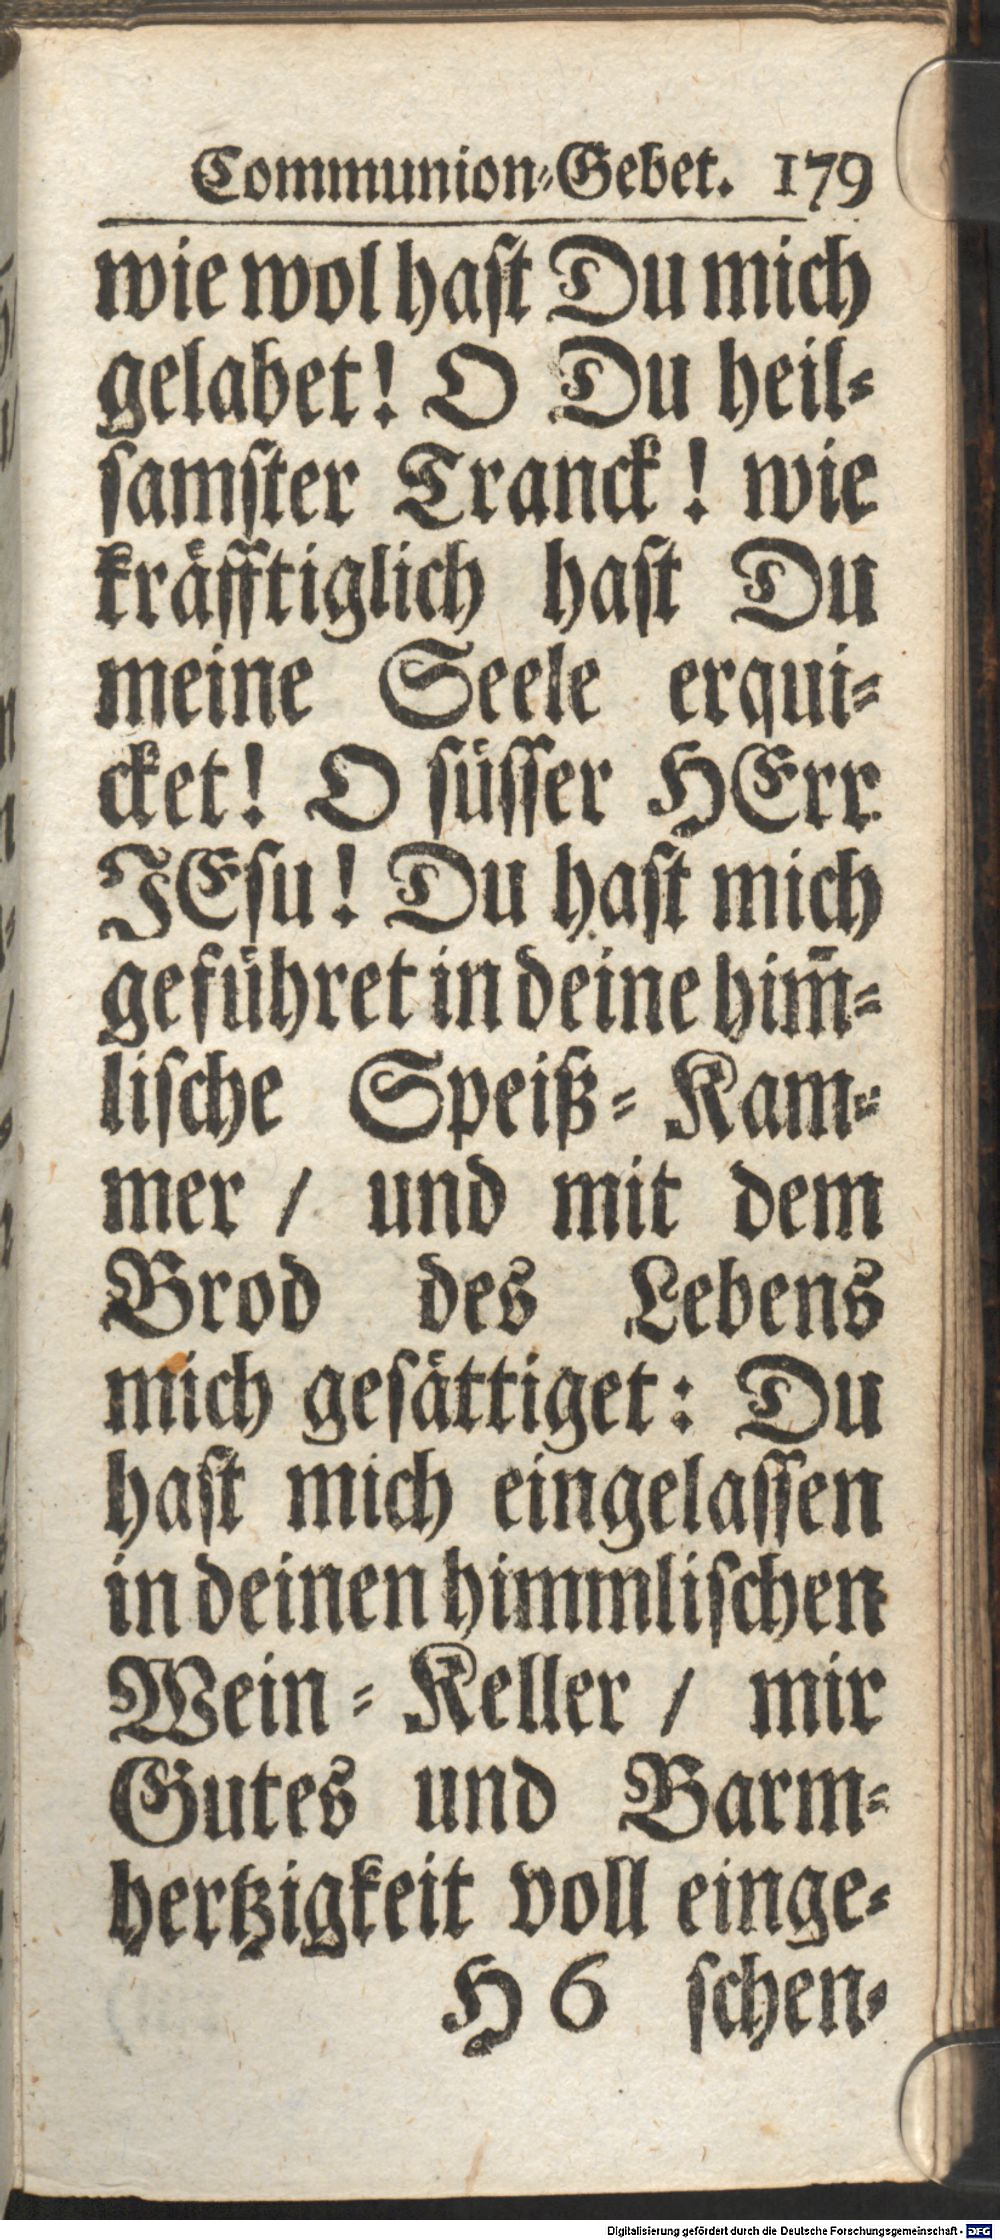 Communion⸗Gebet. 179
wie wol haſt Du mich
gelabet! O Du heil⸗
ſamſter Tranck! wie
kräfftiglich haſt Du
meine Seele erqui⸗
cket! O ſüſſer HErr
JEſu! Du haſt mich
geführet in deine him̅⸗
liſche Speiß⸗Kam⸗
mer / und mit dem
Brod des Lebens
mich geſättiget: Du
haſt mich eingelaſſen
in deinen himmliſchen
Wein⸗Keller / mir
Gutes und Barm⸗
hertzigkeit voll einge⸗
H 6 ſchen⸗
Digitalisierung gefördert durch die Deutsche Forschungsgemeinschaft - DFG